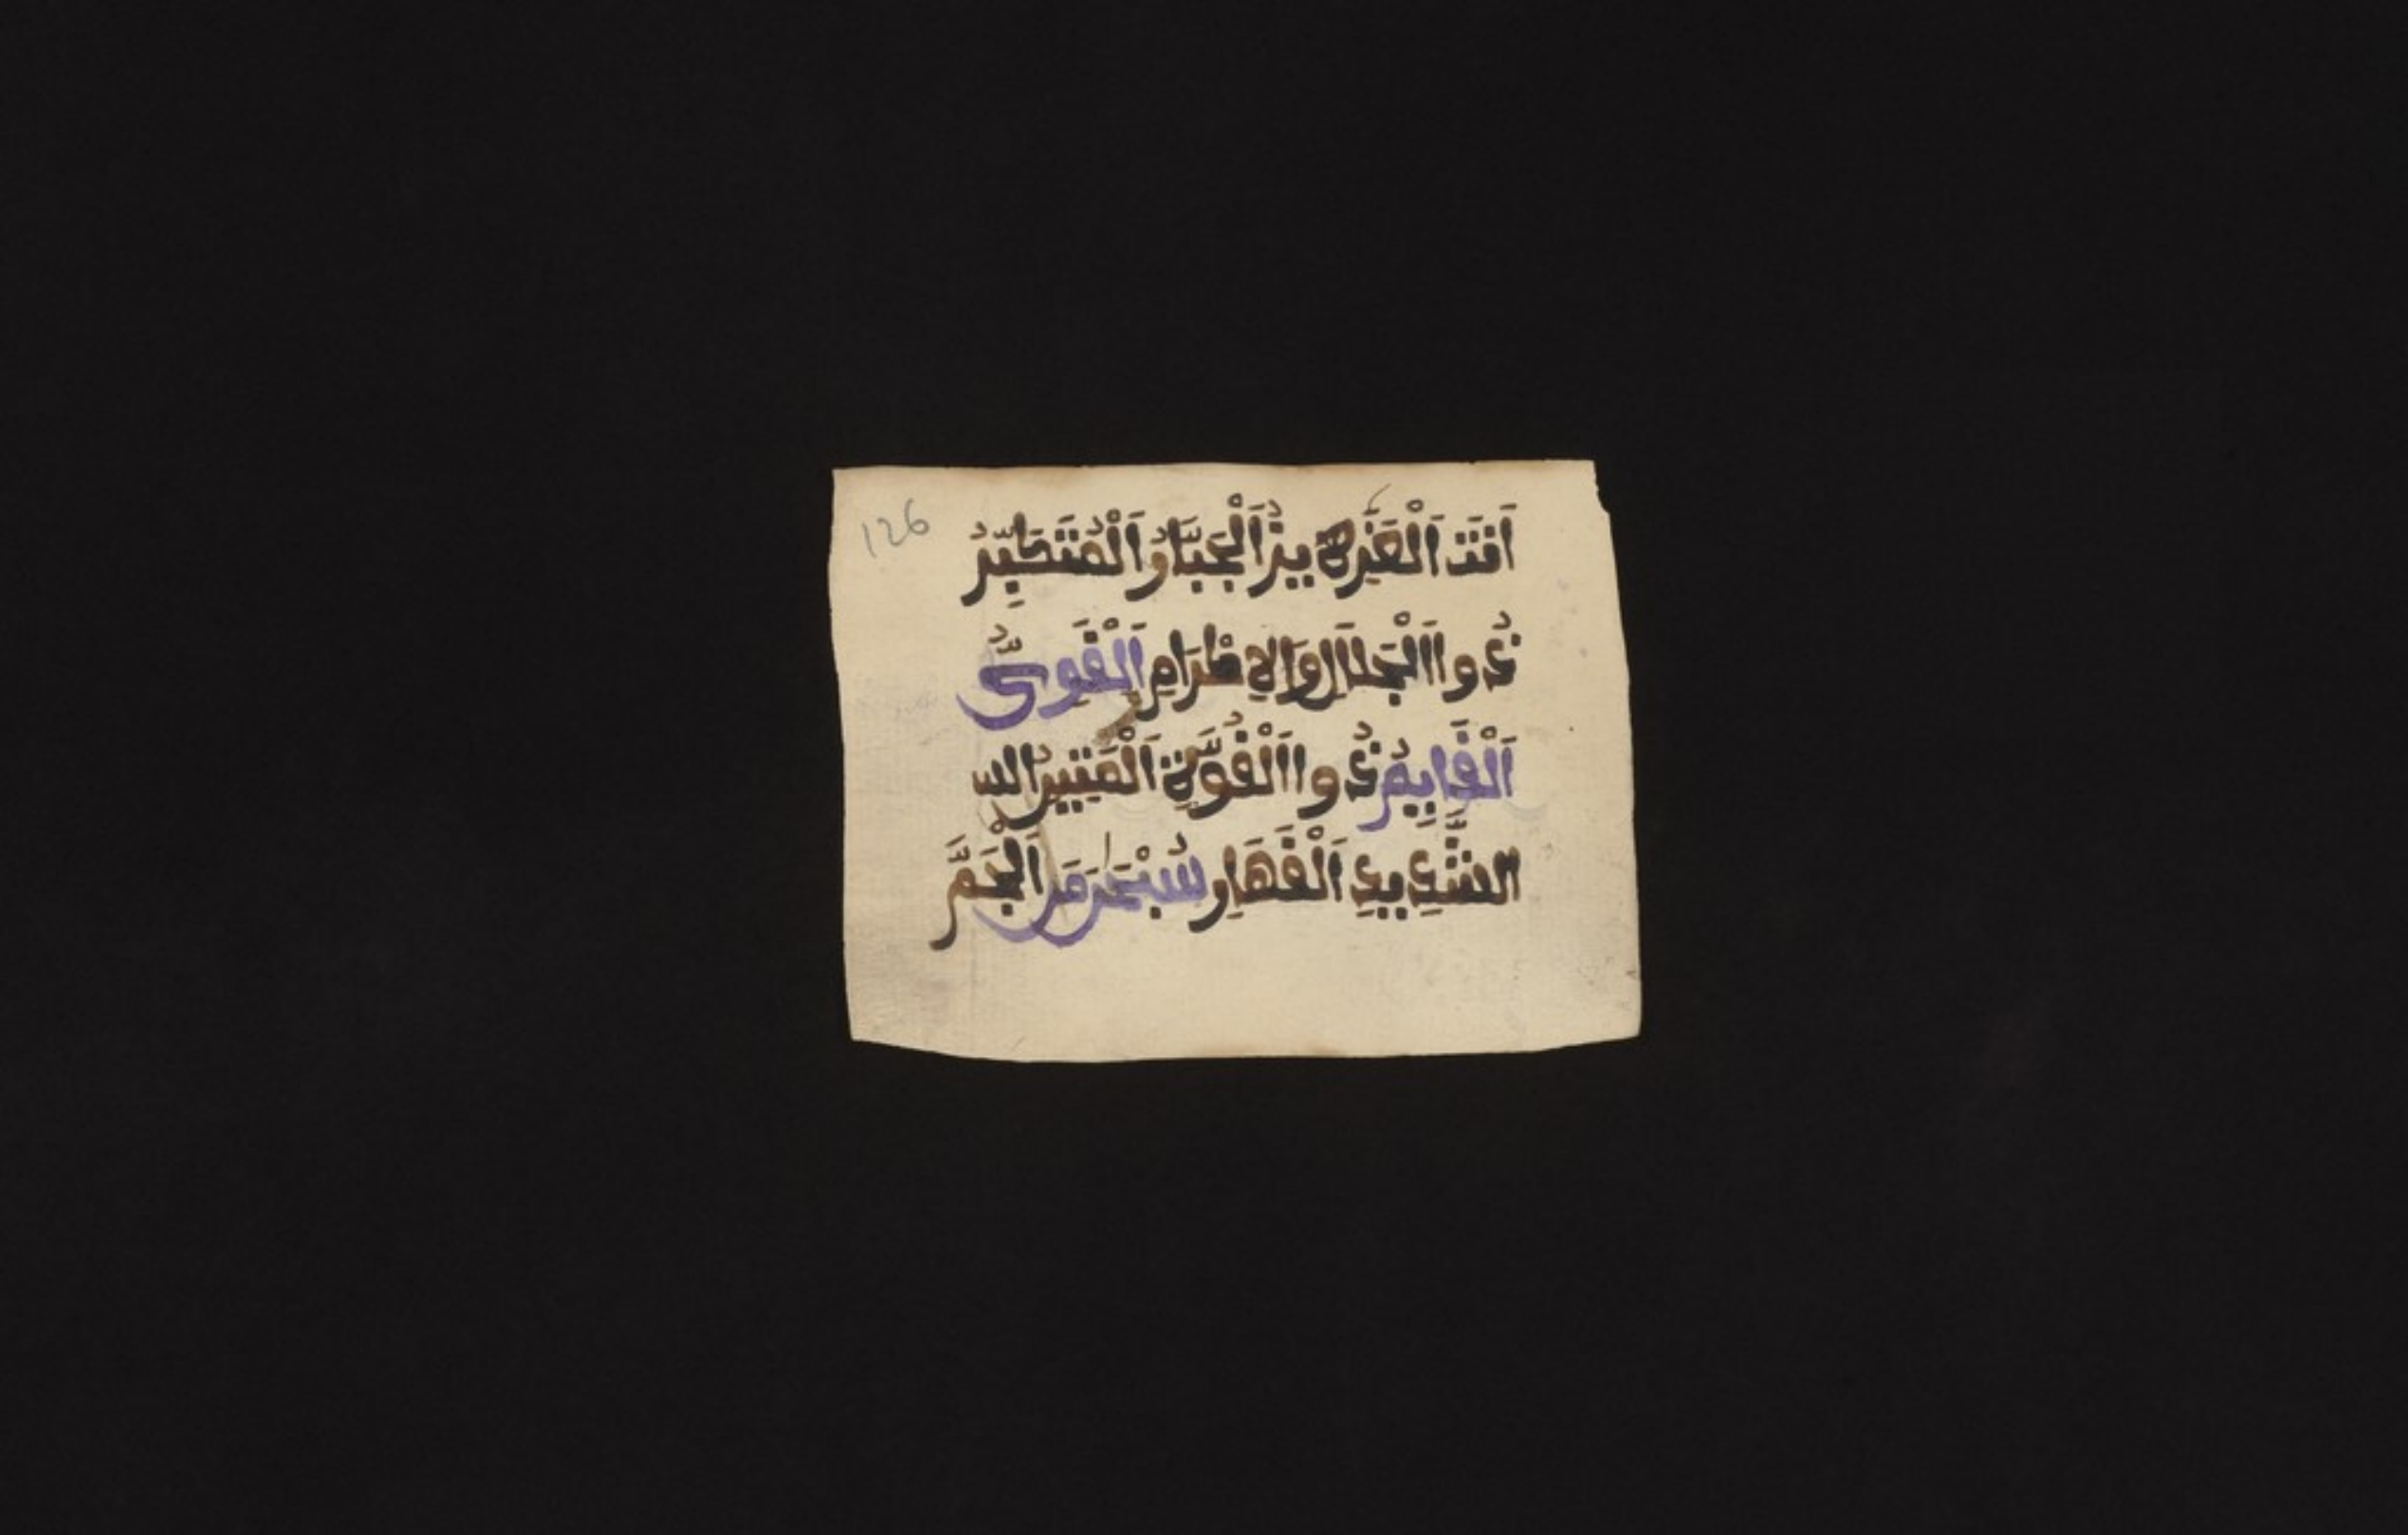 126
اَنْتَ اَلْعَزِيزُ اَلْجَبَّارُ اَلْمُتَكَبِّرُ
ذُواالْجَلَالِ وَالِاكْرَامِ اَلْقَوِىُّ
اَلْقَايِمُ ذُواالْقُوَّةِ اَلْمَتِينُ الس
الشَّدِيدِ اَلْقَهَارِ سُبْحَنَ مَن اَلْجَمَّ